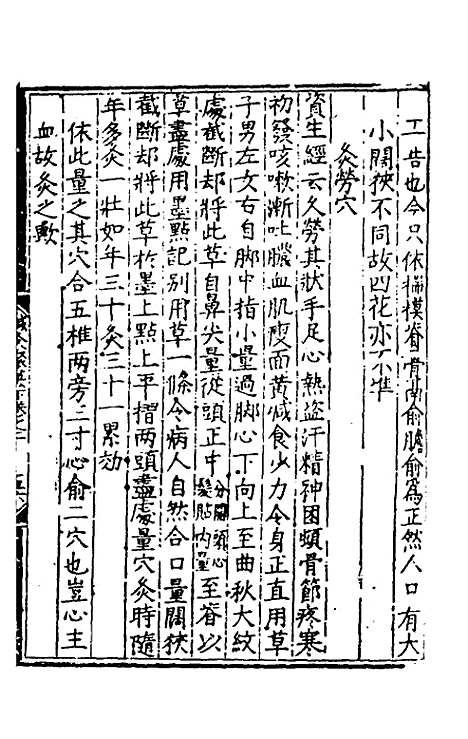 工告也今只依揣摸脊骨膈俞膽俞爲正然人口有大
小闊狹不同故四花亦不準
灸勞穴
資生經云久勞其狀手足心熱盜汗精神困頓骨節疼寒
初發咳嗽漸吐膿血肌瘦面黃減食少力令身正直用草
子男左女右自脚中指小量過脚心下向上至曲秋大紋
處截斷却將此草自鼻尖量從頭正中分開頭心髮貼肉量至脊以
草盡處用墨點記别用草一條令病人自然合口量闊狹
截斷却將此草於墨上點上平摺兩頭盡處量穴灸時隨
年多灸一壯如年三十灸三十一累効
依此量之其穴合五椎兩旁三寸心俞二穴也豈心主
血故灸之歟